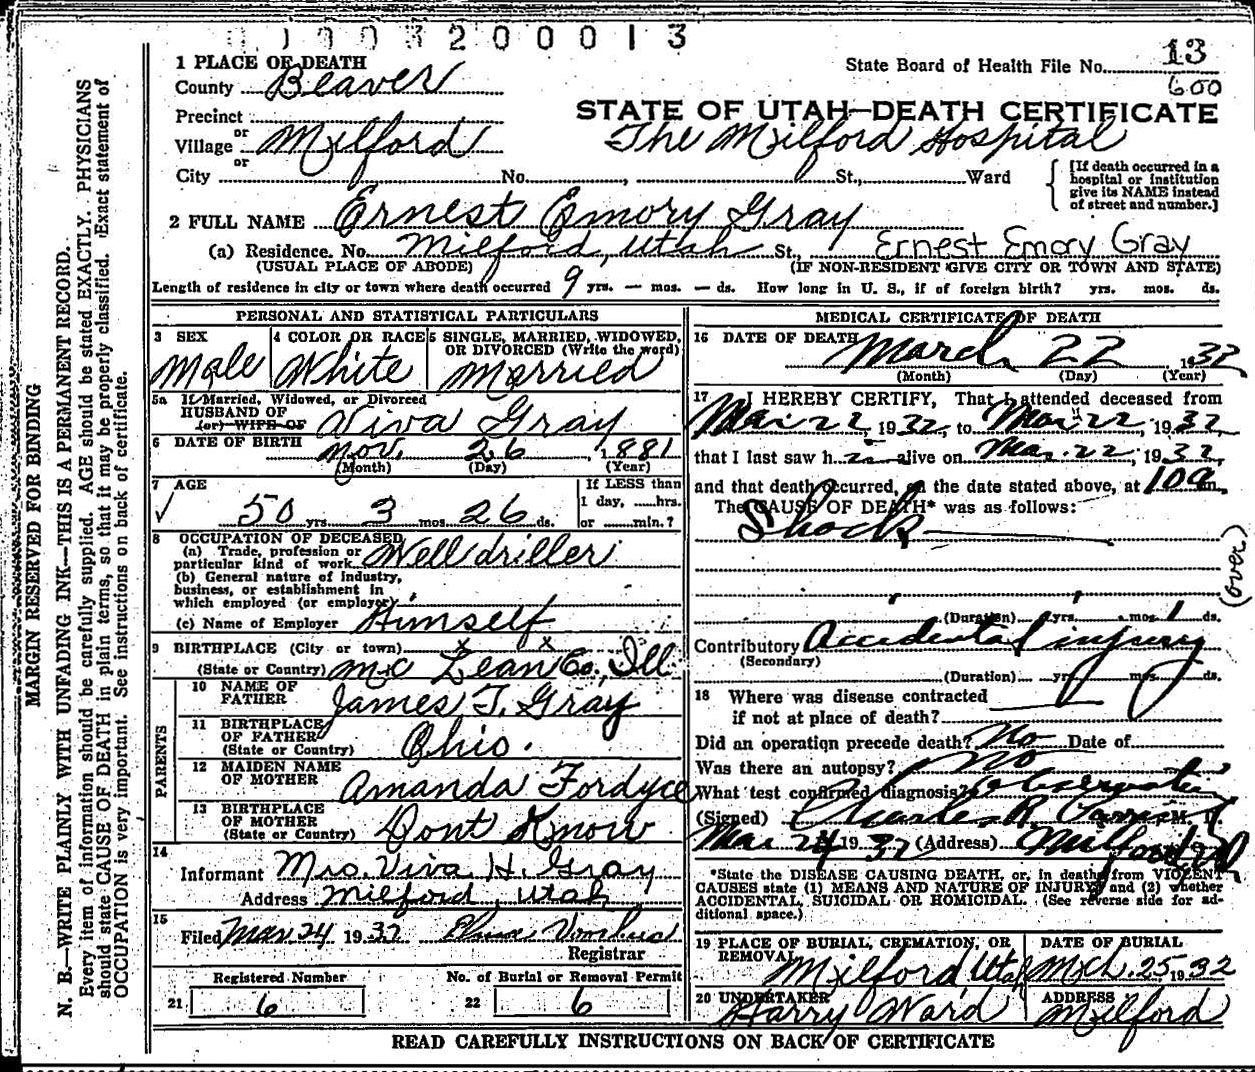 0 1 0 0 3 2 0 0 0 1 3
1 PLACE OF DEATH
County Beaver
Precinct
or
Village Milford
or
City No. , St., Ward
State Board of Health File No. 13
600
STATE OF UTAH—DEATH CERTIFICATE
The Milford Hospital
[If death occurred in a
hospital or institution
give its NAME instead
of street and number.]
2 FULL NAME Ernest Emory Gray
(a) Residence. No. Milford, Utah St., Ernest Emory Gray
(USUAL PLACE OF ABODE) (IF NON-RESIDENT GIVE CITY OR TOWN AND STATE)
Length of residence in city or town where death occurred 9 yrs. — mos. — ds. How long in U. S., if of foreign birth? yrs. mos. ds.
PERSONAL AND STATISTICAL PARTICULARS
3 SEX
Male
4 COLOR OR RACE
White
5 SINGLE, MARRIED, WIDOWED,
OR DIVORCED (Write the word)
Married
5a If Married, Widowed, or Divorced
HUSBAND OF
(or) WIFE OF Viva Gray
6 DATE OF BIRTH Nov. 26, 1881
(Month) (Day) (Year)
7 AGE
✓ 50 yrs 3 mos. 26 ds.
If LESS than
1 day, ......hrs.
or ......min.?
8 OCCUPATION OF DECEASED
(a) Trade, profession or
particular kind of work Well driller
(b) General nature of industry,
business, or establishment in
which employed (or employer)
(c) Name of Employer Himself
9 BIRTHPLACE (City or town)
(State or Country) Mc Lean Co., Ill
PARENTS
10 NAME OF
FATHER James T. Gray
11 BIRTHPLACE
OF FATHER
(State or Country) Ohio.
12 MAIDEN NAME
OF MOTHER Amanda Fordyce
13 BIRTHPLACE
OF MOTHER
(State or Country) Dont Know
14
Informant Mrs. Viva H. Gray
Address Milford, Utah
15
Filed Mar 24 1932
Registrar
Registered Number
21 6
No. of Burial or Removal Permit
22 6
MEDICAL CERTIFICATE OF DEATH
16 DATE OF DEATH March 22 1932
(Month) (Day) (Year)
17 I HEREBY CERTIFY, That I attended deceased from
Mar 22, 1932, to Mar 22, 1932,
that I last saw h alive on Mar 22, 1932,
and that death occurred, on the date stated above, at 10 a m.
The CAUSE OF DEATH* was as follows:
Shock
(over)
(Duration) yrs. mos. 1 ds.
Contributory Accidental injury
(Secondary)
(Duration) yrs. mos. ds.
18 Where was disease contracted
if not at place of death?
Did an operation precede death? No Date of
Was there an autopsy? No
What test confirmed diagnosis?
(Signed) Charles R. M. D.
Mar 24 1932 (Address) Milford
*State the DISEASE CAUSING DEATH, or, in deaths from VIOLENT
CAUSES state (1) MEANS AND NATURE OF INJURY and (2) whether
ACCIDENTAL, SUICIDAL OR HOMICIDAL. (See reverse side for ad-
ditional space.)
19 PLACE OF BURIAL, CREMATION, OR
REMOVAL Milford, Utah
DATE OF BURIAL
Mch. 25 1932
20 UNDERTAKER
Harry Ward
ADDRESS
Milford
READ CAREFULLY INSTRUCTIONS ON BACK OF CERTIFICATE
MARGIN RESERVED FOR BINDING
N. B.—WRITE PLAINLY WITH UNFADING INK—THIS IS A PERMANENT RECORD.
Every item of information should be carefully supplied. AGE should be stated EXACTLY. PHYSICIANS
should state CAUSE OF DEATH in plain terms, so that it may be properly classified. Exact statement of
OCCUPATION is very important. See instructions on back of certificate.